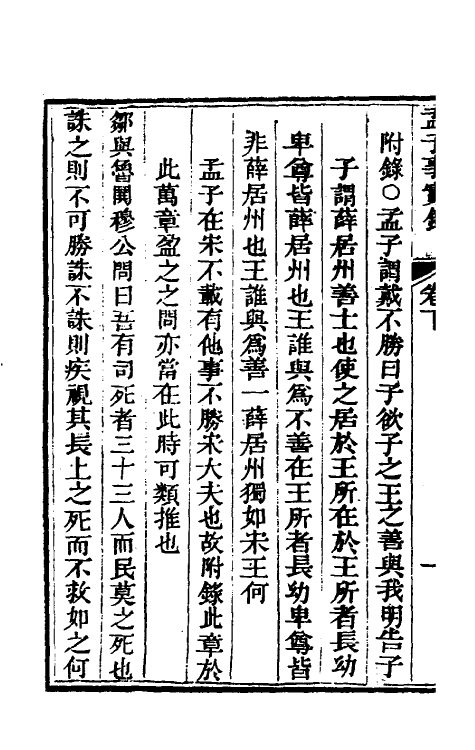 孟子事實錄　卷下　一
附錄○孟子謂戴不勝曰子欲子之王之善與我明告子
子謂薛居州善士也使之居於王所在於王所者長幼
卑尊皆薛居州也王誰與爲不善在王所者長幼卑尊皆
非薛居州也王誰與爲善一薛居州獨如宋王何
孟子在宋不載有他事不勝宋大夫也故附錄此章於
此萬章盈之之問亦當在此時可類推也
鄒與魯鬨穆公問曰吾有司死者三十三人而民莫之死也
誅之則不可勝誅不誅則疾視其長上之死而不救如之何